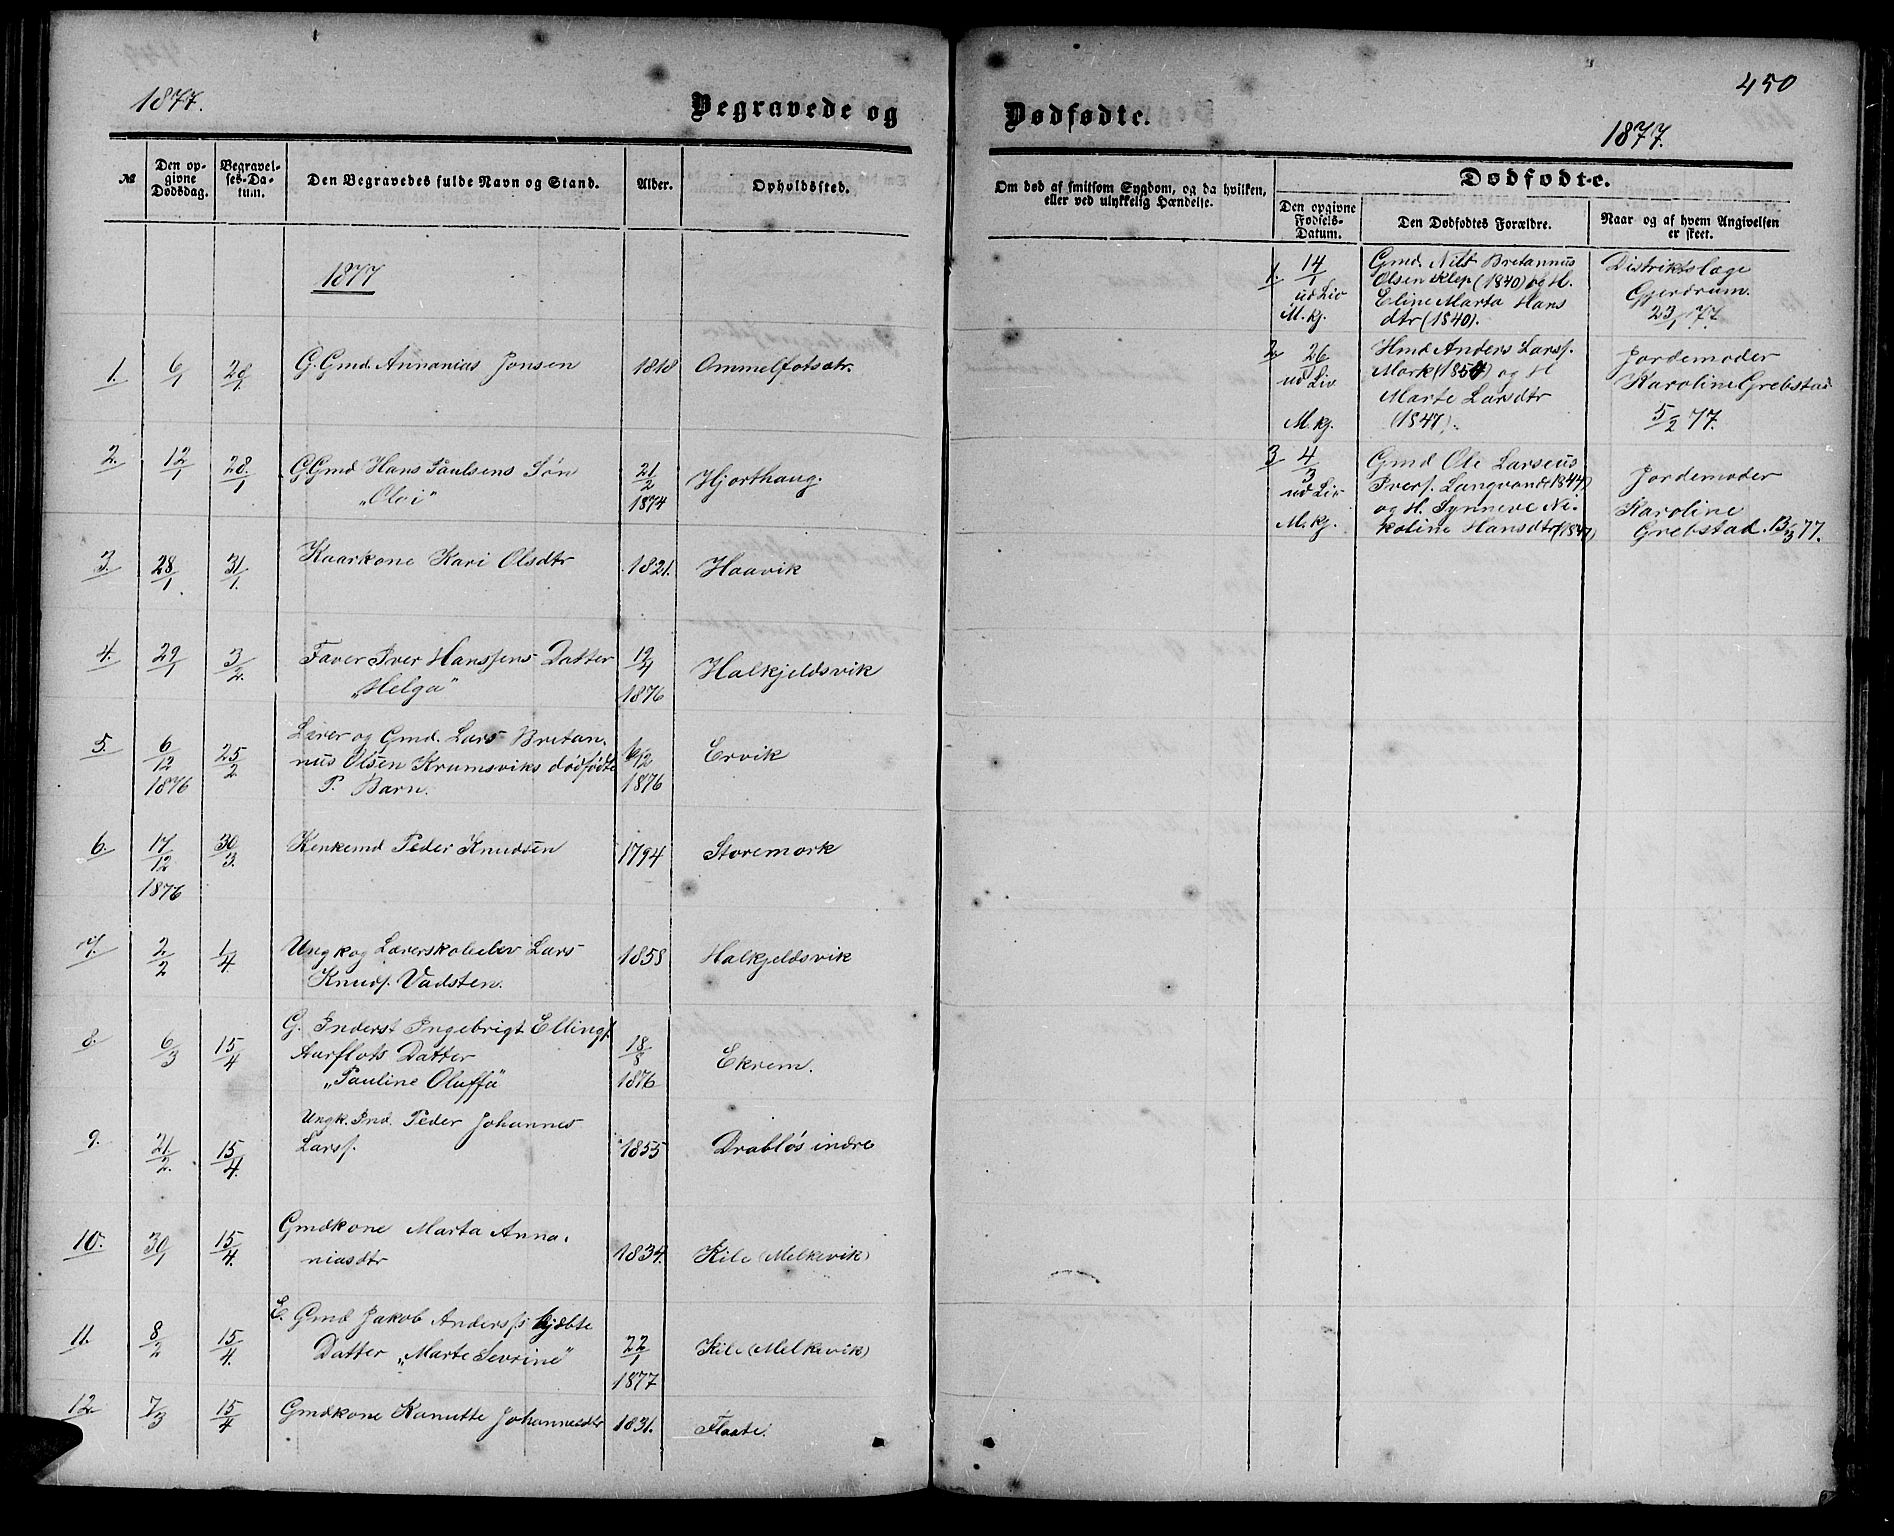 1877.
Begravede og
№
Den opgivne Dødsdag.
Begravelses-Datum.
Den Begravedes fulde Navn og Stand.
Alder.
Opholdssted.
1877
1. 6/1 28/1 G.Gmd. Annanias Jonsen 1818 Ammelfotsætr.
2. 12/1 28/1 G.Gmd Hans Paulsens Søn 21/2 Hjorthaug.
"Olvi" 1874
3. 28/1 31/1 Kaarkone Kari Olsdtr 1821. Haavik
4. 29/1 3/2. Faver Iver Hanssens Datter 19/4 Halkjeldsvik
"Helga" 1876
5. 6/12 25/2 Lærer og Gmd. Lars Bretan- 6/12 Ervik
1876 nus Olsen Krumsviks dødfødte 1876
P. Barn.
6. 17/12 30/3. Kenkemd Peder Knudsen 1794 Storemork
1876
7. 2/2 1/4 Ungk og Lærerskoleelev Lars 1858 Halkjeldsvik
Knuds. Vadsten.
8. 6/3 15/4 G. Inderst Ingebrigt Ellings.
Aurflots Datter 18/8 Ekrem.
"Pauline Oluffa" 1876
9. 21/2. 15/4. Ungk. Ind. Peder Johannes
Larss. 1855 Drabløs indre
10. 30/1 15/4. Gmdkone Marta Anna-
niasdtr 1834. Kile (Melkevik)
11. 8/2 15/4. E. Gmd Jakob Anderss. hjdbte
Datter "Marte Sevrine" 22/1 Kile (Melkevik)
1877
12. 7/3 15/4 Gmdkone Kanutte Johannesdtr 1831. Flaate.
450
Dødfødte.
1877.
Om død af smitsom Sygdom, og da hvilken,
eller ved ulykkelig Hændelse.
Dødfødte.
Den opgivne Fødsels-Datum.
Den Dødfødtes Forældre.
Naar og af hvem Angivelsen er skeet.
1. 14/1 Gmd. Nils Bretannus Distriktslæge
Olsen Klep (1840) og H. Gjerdrum.
ud Liv Eline Marta Hans 23/1 77.
M.kj. dtr (1840).
2. 26/1 Hmd Anders Larss. Jordemoder
ud Liv Mork (1854) og H Karoline Grebstad
Marte Larsdtr 5/2 77.
M.kj. (1847).
3 4/3 Gmd Ole Larsens Jordemoder
ud Liv Ivers. Langvand (1844) Karoline
og H. Synneve Ni-
M.kj. koline Hansdtr (1847) Grebstad. 13/3 77.